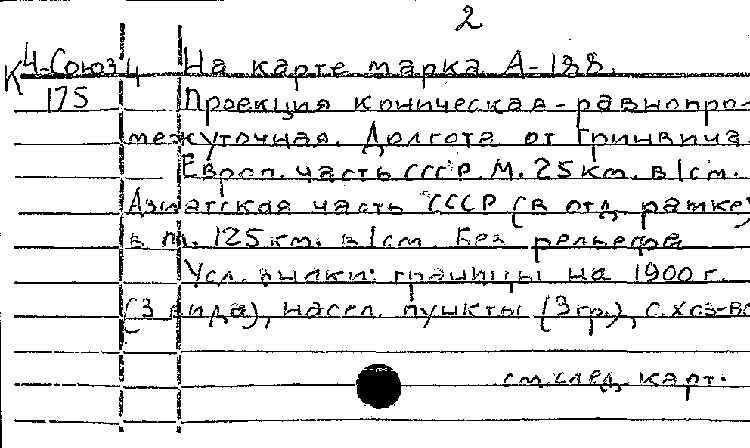 2
К 4-Союз 4 На карте марка А-188.
175 Проекция коническая-равнопро-
межуточная. Долгота от Гринвича.
Европ. часть СССР М. 25км. в 1см.
Азиатская часть СССР (в отд. рамке)
в м. 125км. в 1см. Без рельефа
Усл. знаки: границы на 1900г.
(3 вида), насел. пункты (3гр.), с.хоз-во
см. след. карт.